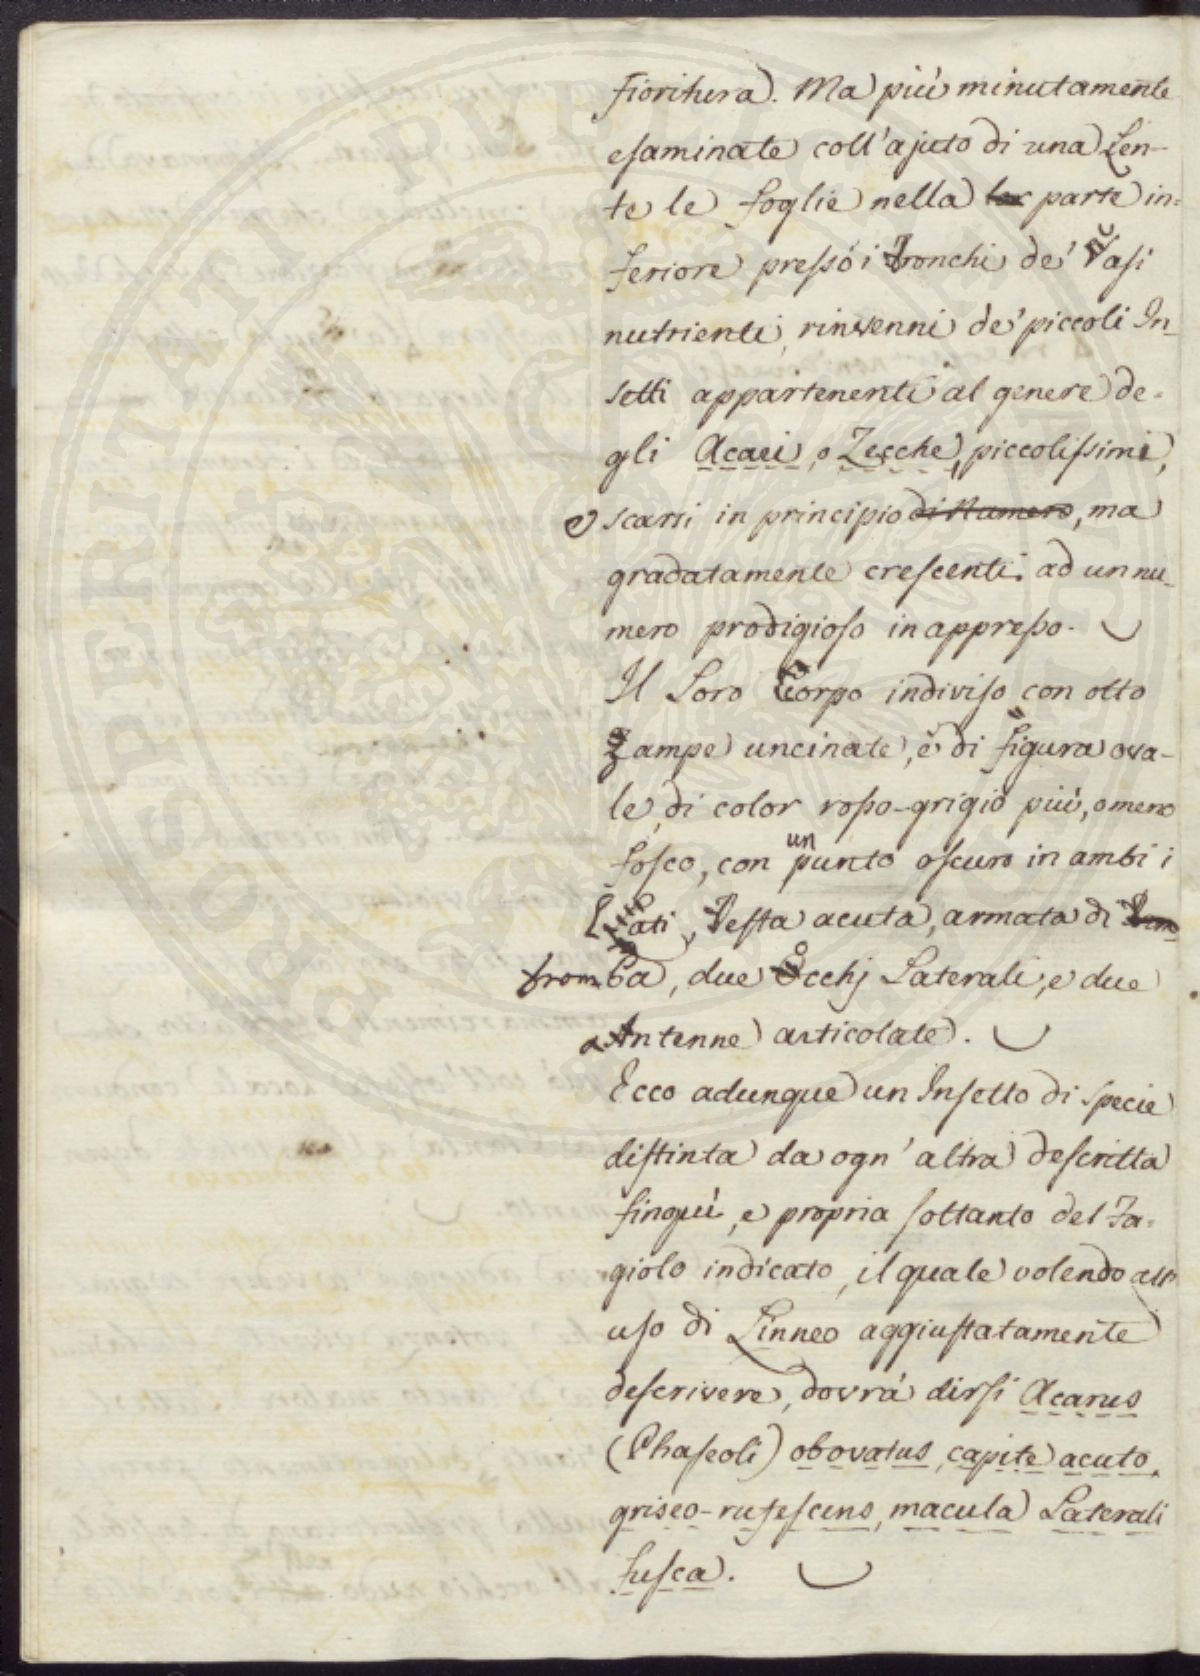 fioritura. Ma più minutamente
esaminate coll'ajuto di una Len-
te le foglie nella parte in-
feriore presso i tronchi de' Vasi
nutrienti, rinvenni de' piccoli In-
setti appartenenti al genere de-
gli Acari, o Zecche, piccolissimi,
e scarsi in principio di Numero, ma
gradatamente crescenti ad un nu-
mero prodigioso in appresso.
Il Loro Corpo indiviso con otto
zampe uncinate, è di figura ova-
le, di color rosso-grigio più, o meno
fosco, con un punto oscuro in ambi i
Lati, Testa acuta, armata di
tromba, due Occhj Laterali, e due
Antenne articolate.
Ecco adunque un Insetto di specie
distinta da ogn' altra descritta
finquì, e propria soltanto del Fa-
giolo indicato, il quale volendo all'
uso di Linneo aggiustatamente
descrivere, dovrà dirsi Acarus
(Phaseoli) obovatus, capite acuto,
griseo-rufescens, macula Laterali
fusca.